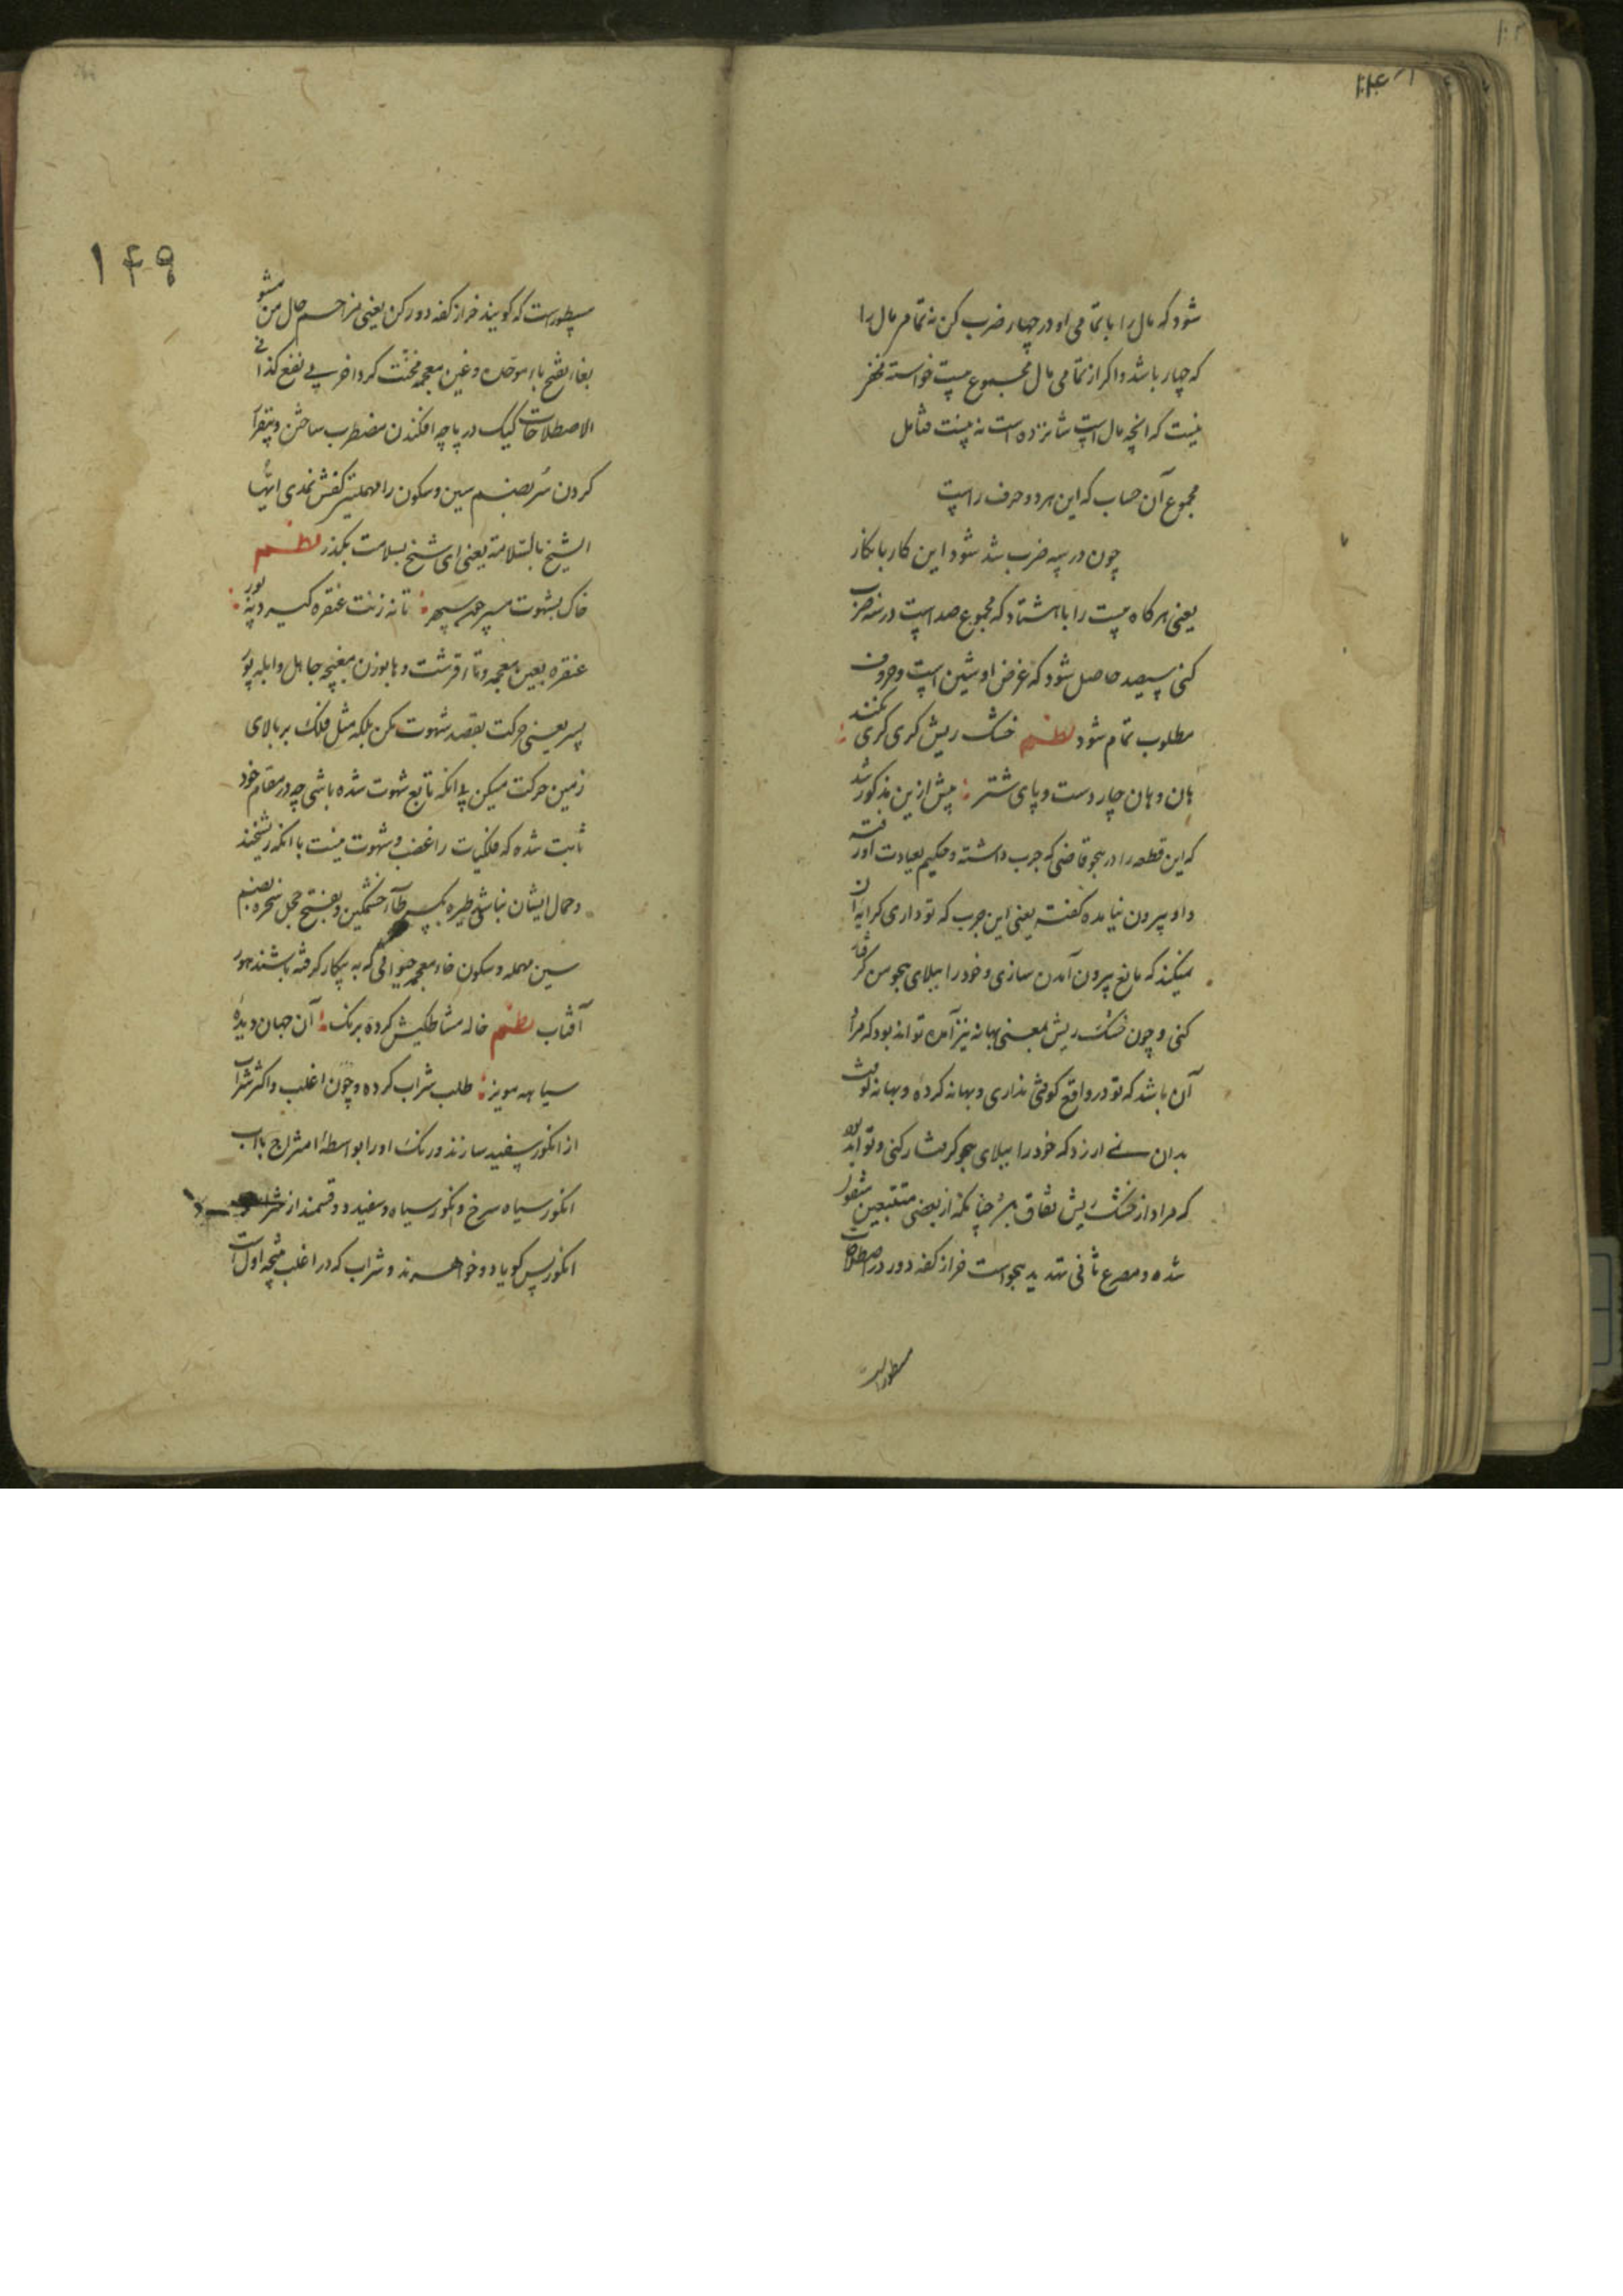 شود که مال را با تمامی او در چهار ضرب کن نه تمام مال را
که چهار باشد و اکر از تمامی مال مجموع بیت خواسته
نیست که انچه مال است شانزده است نه بیست فتأمل
مجموع آن حساب که این هر دو حرف راست
چون در سه ضرب شد شود این کار با نکار
یعنی هر کاه بیست را با هشتاد که مجموع صد است در سه ضرب
کنی سیصد حاصل شود که غرض او شین است و حروف
مطلوب تمام شود نظم خشک ریش کری کری نکند
هان و هان چار دست و پای شتر پیش ازین مذکور شد
که این قطعه را در هجو قاضی که جرب داشته و حکیم بعیادت او رفته
و او بیرون نیامده کفته یعنی این جرب که تو داری کرایه آن
نمیکند که مانع بیرون آمدن سازی و خود را ببلای هجو من کرفتار
کنی و چون خشک ریش بمعنی بهانه نیز آمده تواند بود که مراد
آن باشد که تو در واقع کوفتی نداری و بهانه کرده و بهانه کوفت
بدان نمی ارزد که خود را ببلای هجو کرفتار کنی و تواند بود
که مراد از خشک ریش نفاق باشد چنانکه از بعضی متتبعین منقول
شده و مصرع ثانی تهدید هجو است خر از کفه دور در اصطلاحات
مسطور است
۱۴۹
مسطور است که کویند خر از کفه دور کن یعنی مزاحم حال من مشو
بغا بفتح باء موحده و غین معجمه مخنث کرد اخر بی نفع کذا فی
الاصطلاحات کیک در پاچه افکندن مضطرب ساختن و بیقرار
کردن سر بضم سین و سکون را مهملتین کفش نمدی ایها
الشیخ بالسلامة یعنی ای شیخ بسلامت بکذر نظم
خاک بشهوت مسپر چون سپهر تا نه زنت غتفره کیرد نه پور
غتفره بغین معجمه و تا قرشت و ها بوزن مغبچه جاهل و ابله پور
پسر یعنی حرکت بقصد شهوت مکن بلکه مثل فلک بر بالای
زمین حرکت میکن بی انکه تابع شهوت شده باشی چه در مقام خود
ثابت شده که فلکیات را غضب و شهوت نیست با انکه ریشخند
و حمال ایشان نباشی طیره بکسر طاء خشمکین و بفتح خجل سخره بضم
سین مهمله و سکون خاء معجمه حیوانی که به بیکار کرفته باشند هور
آفتاب نظم خاله مشاطکیش کرده برنک آن جهان دیده
سیاهه مویز طلب شراب کرده و چون اغلب و اکثر شراب
از انکور سفید سازند و رنک او را بواسطۀ امتزاج با آب
انکور سیاه سرخ و انکور سیاه و سفید دو قسمند از
انکور پس کویا دو خواهرند و شراب که در اغلب نتیجه اول است